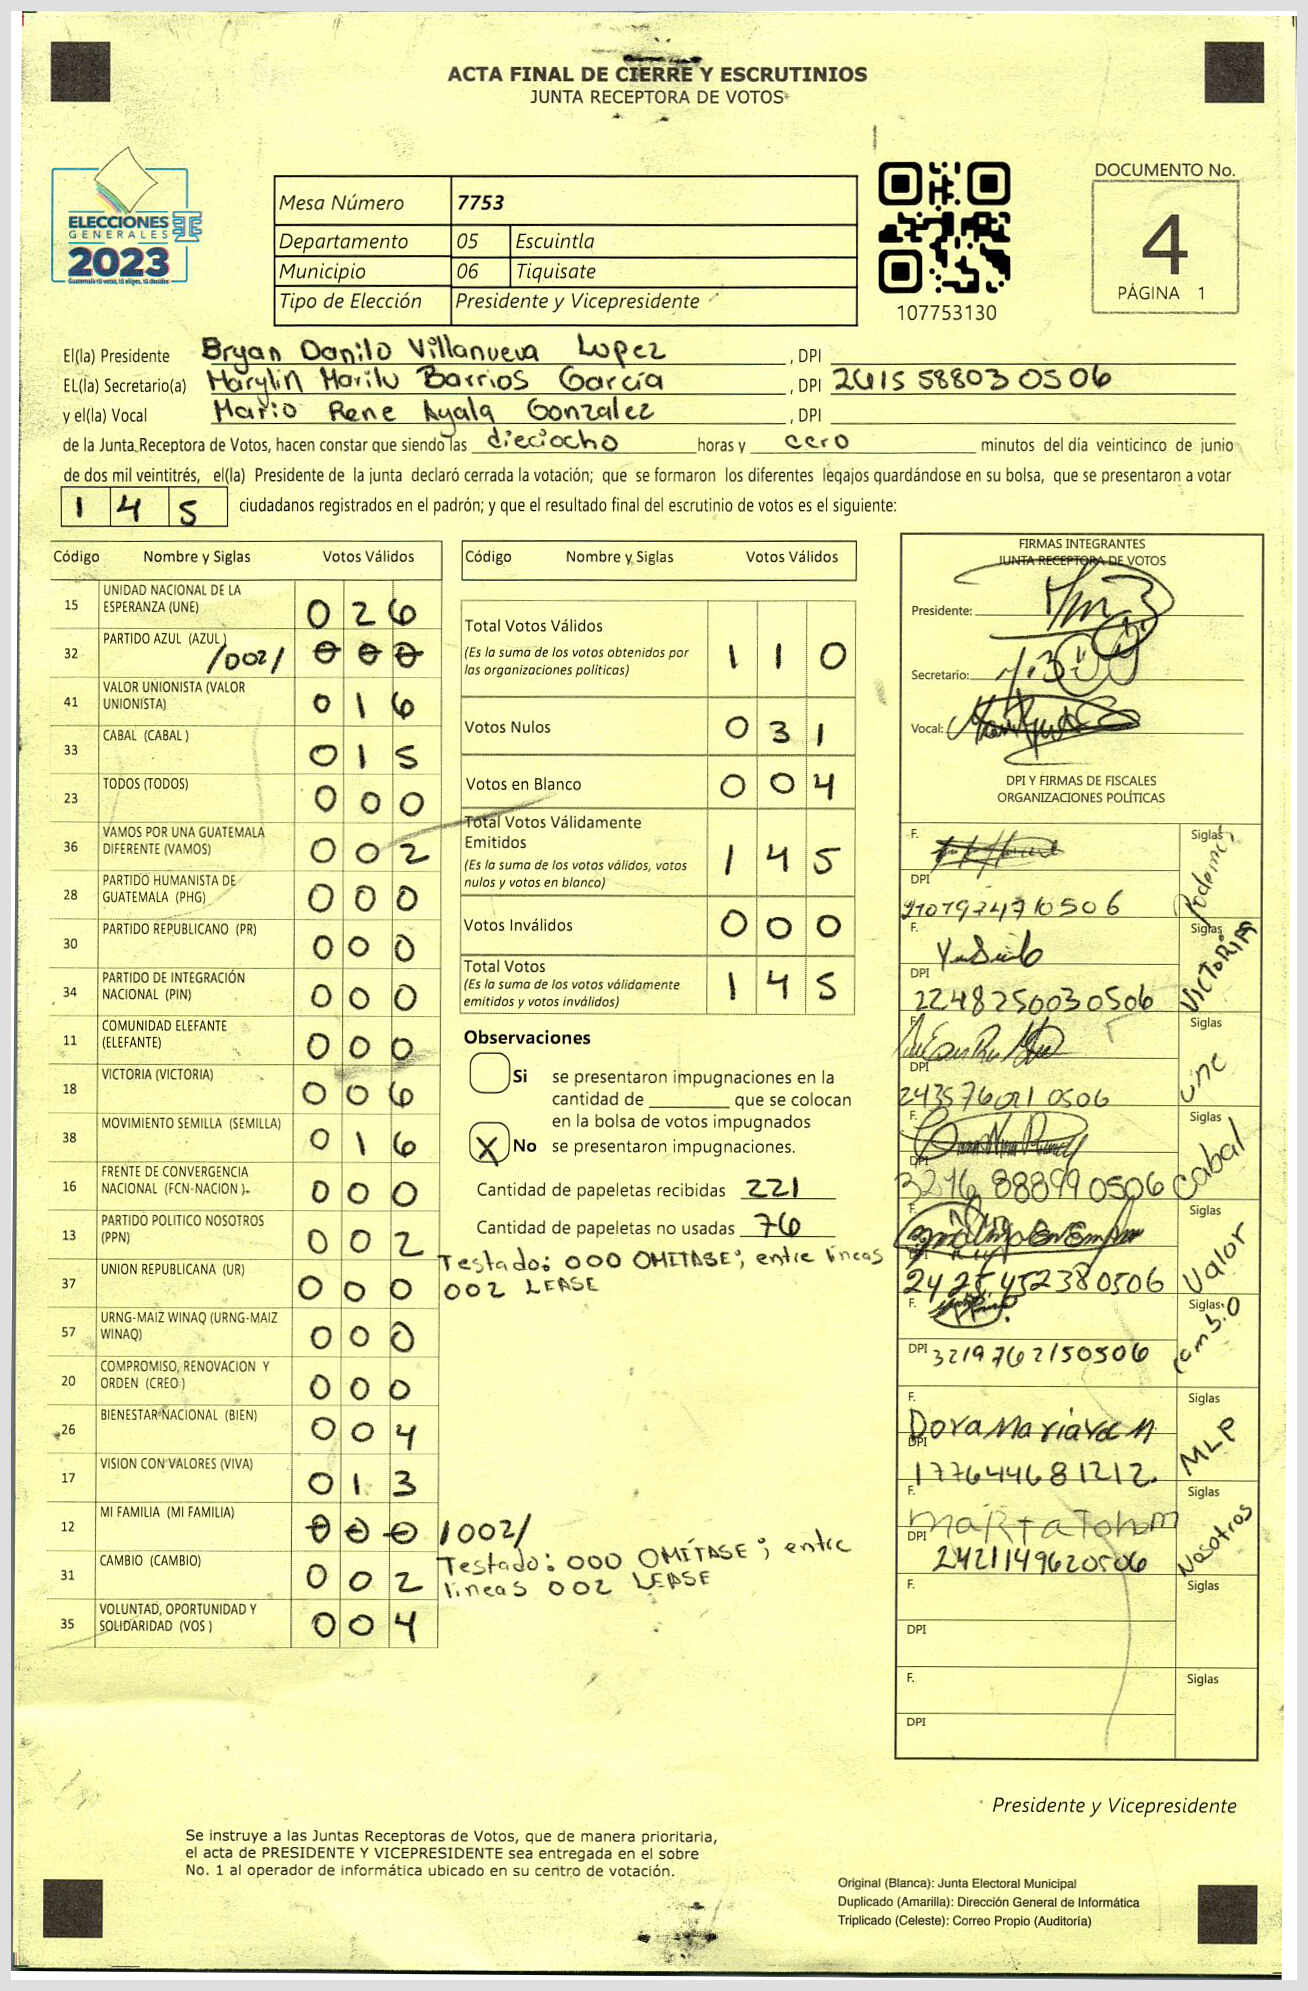 ACTA FINAL DE CIERRE Y ESCRUTINIOS
JUNTA RECEPTORA DE VOTOS
ELECCIONES
GENERALES
2023
Mesa Número 7753
Departamento 05 Escuintla
Municipio 06 Tiquisate
Tipo de Elección Presidente y Vicepresidente
107753130
DOCUMENTO No.
4
PÁGINA 1
El(la) Presidente Bryan Danilo Villanueva Lopez, DPI
EL(la) Secretario(a) Marylin Marilu Barrios García, DPI 2415 58803 0506
y el(la) Vocal Mario Rene Ayala Gonzalez, DPI
de la Junta Receptora de Votos, hacen constar que siendo las dieciocho horas y cero minutos del día veinticinco de junio
de dos mil veintitrés, el(la) Presidente de la junta declaró cerrada la votación; que se formaron los diferentes legajos guardándose en su bolsa, que se presentaron a votar
1 4 5 ciudadanos registrados en el padrón; y que el resultado final del escrutinio de votos es el siguiente:
Código Nombre y Siglas Votos Válidos
15 UNIDAD NACIONAL DE LA ESPERANZA (UNE) 0 2 6
32 PARTIDO AZUL (AZUL) /002/ 0 0 0
41 VALOR UNIONISTA (VALOR UNIONISTA) 0 1 6
33 CABAL (CABAL) 0 1 5
23 TODOS (TODOS) 0 0 0
36 VAMOS POR UNA GUATEMALA DIFERENTE (VAMOS) 0 0 2
28 PARTIDO HUMANISTA DE GUATEMALA (PHG) 0 0 0
30 PARTIDO REPUBLICANO (PR) 0 0 0
34 PARTIDO DE INTEGRACIÓN NACIONAL (PIN) 0 0 0
11 COMUNIDAD ELEFANTE (ELEFANTE) 0 0 0
18 VICTORIA (VICTORIA) 0 0 6
38 MOVIMIENTO SEMILLA (SEMILLA) 0 1 6
16 FRENTE DE CONVERGENCIA NACIONAL (FCN-NACION) 0 0 0
13 PARTIDO POLITICO NOSOTROS (PPN) 0 0 2
37 UNION REPUBLICANA (UR) 0 0 0
57 URNG-MAIZ WINAQ (URNG-MAIZ WINAQ) 0 0 0
20 COMPROMISO, RENOVACION Y ORDEN (CREO) 0 0 0
26 BIENESTAR NACIONAL (BIEN) 0 0 4
17 VISION CON VALORES (VIVA) 0 1 3
12 MI FAMILIA (MI FAMILIA) 0 0 0 /002/
31 CAMBIO (CAMBIO) 0 0 2
35 VOLUNTAD, OPORTUNIDAD Y SOLIDARIDAD (VOS) 0 0 4
Código Nombre y Siglas Votos Válidos
Total Votos Válidos 1 1 0
(Es la suma de los votos obtenidos por
las organizaciones políticas)
Votos Nulos 0 3 1
Votos en Blanco 0 0 4
Total Votos Válidamente
Emitidos 1 4 5
(Es la suma de los votos válidos, votos
nulos y votos en blanco)
Votos Inválidos 0 0 0
Total Votos 1 4 5
(Es la suma de los votos válidamente
emitidos y votos inválidos)
Observaciones
Si se presentaron impugnaciones en la
cantidad de ________ que se colocan
en la bolsa de votos impugnados
X No se presentaron impugnaciones.
Cantidad de papeletas recibidas 221
Cantidad de papeletas no usadas 76
Testado: 000 OMITASE; entre líneas
002 LEASE
Testado: 000 OMITASE; entre
líneas 002 LEASE
FIRMAS INTEGRANTES
JUNTA RECEPTORA DE VOTOS
Presidente:
Secretario:
Vocal:
DPI Y FIRMAS DE FISCALES
ORGANIZACIONES POLÍTICAS
F. Siglas Podemos
DPI
F. Siglas VICTORIA
DPI 2248250030506
F. Siglas UNE
DPI
F. Siglas Cabal
DPI
F. Siglas Valor
DPI 2425452380506
F. Siglas Cambio
DPI 3219762150506
F. Dora Maria Siglas MLP
DPI 177644681212
F. Marta Tohom Siglas Nosotros
DPI 2421149620506
F. Siglas
DPI
F. Siglas
DPI
Presidente y Vicepresidente
Se instruye a las Juntas Receptoras de Votos, que de manera prioritaria,
el acta de PRESIDENTE Y VICEPRESIDENTE sea entregada en el sobre
No. 1 al operador de informática ubicado en su centro de votación.
Original (Blanca): Junta Electoral Municipal
Duplicado (Amarilla): Dirección General de Informática
Triplicado (Celeste): Correo Propio (Auditoría)